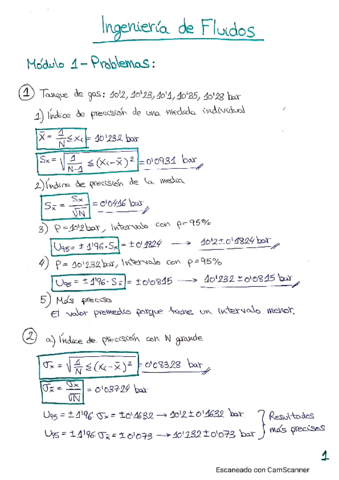 Ingeniería de Fluidos
Módulo 1 - Problemas:
① Tanque de gas: 10'2, 10'23, 10'1, 10'35, 10'28 bar
1) Índice de precisión de una medida individual
x̄ = 1/N Σ xᵢ = 10'232 bar
Sx = √(1/(N-1) Σ (xᵢ - x̄)²) = 0'0931 bar
2) Índice de precisión de la media
Sx̄ = Sx/√N = 0'0416 bar
3) P = 10'2 bar, Intervalo con p = 95%
U95 = ± 1'96 · Sx = ± 0'1824 → 10'2 ± 0'1824 bar
4) P = 10'232 bar, Intervalo con p = 95%
U95 = ± 1'96 · Sx̄ = ± 0'0815 → 10'232 ± 0'0815 bar
5) Más preciso
El valor promedio porque tiene un intervalo menor.
② a) Índice de precisión con N grande
σx = √(1/N Σ (xᵢ - x̄)²) = 0'08328 bar
σx̄ = σx/√N = 0'03724 bar
U95 = ± 1'96 σx = ± 0'1632 → 10'2 ± 0'1632 bar
U95 = ± 1'96 σx̄ = ± 0'073 → 10'232 ± 0'073 bar
Resultados
más precisos
1
Escaneado con CamScanner